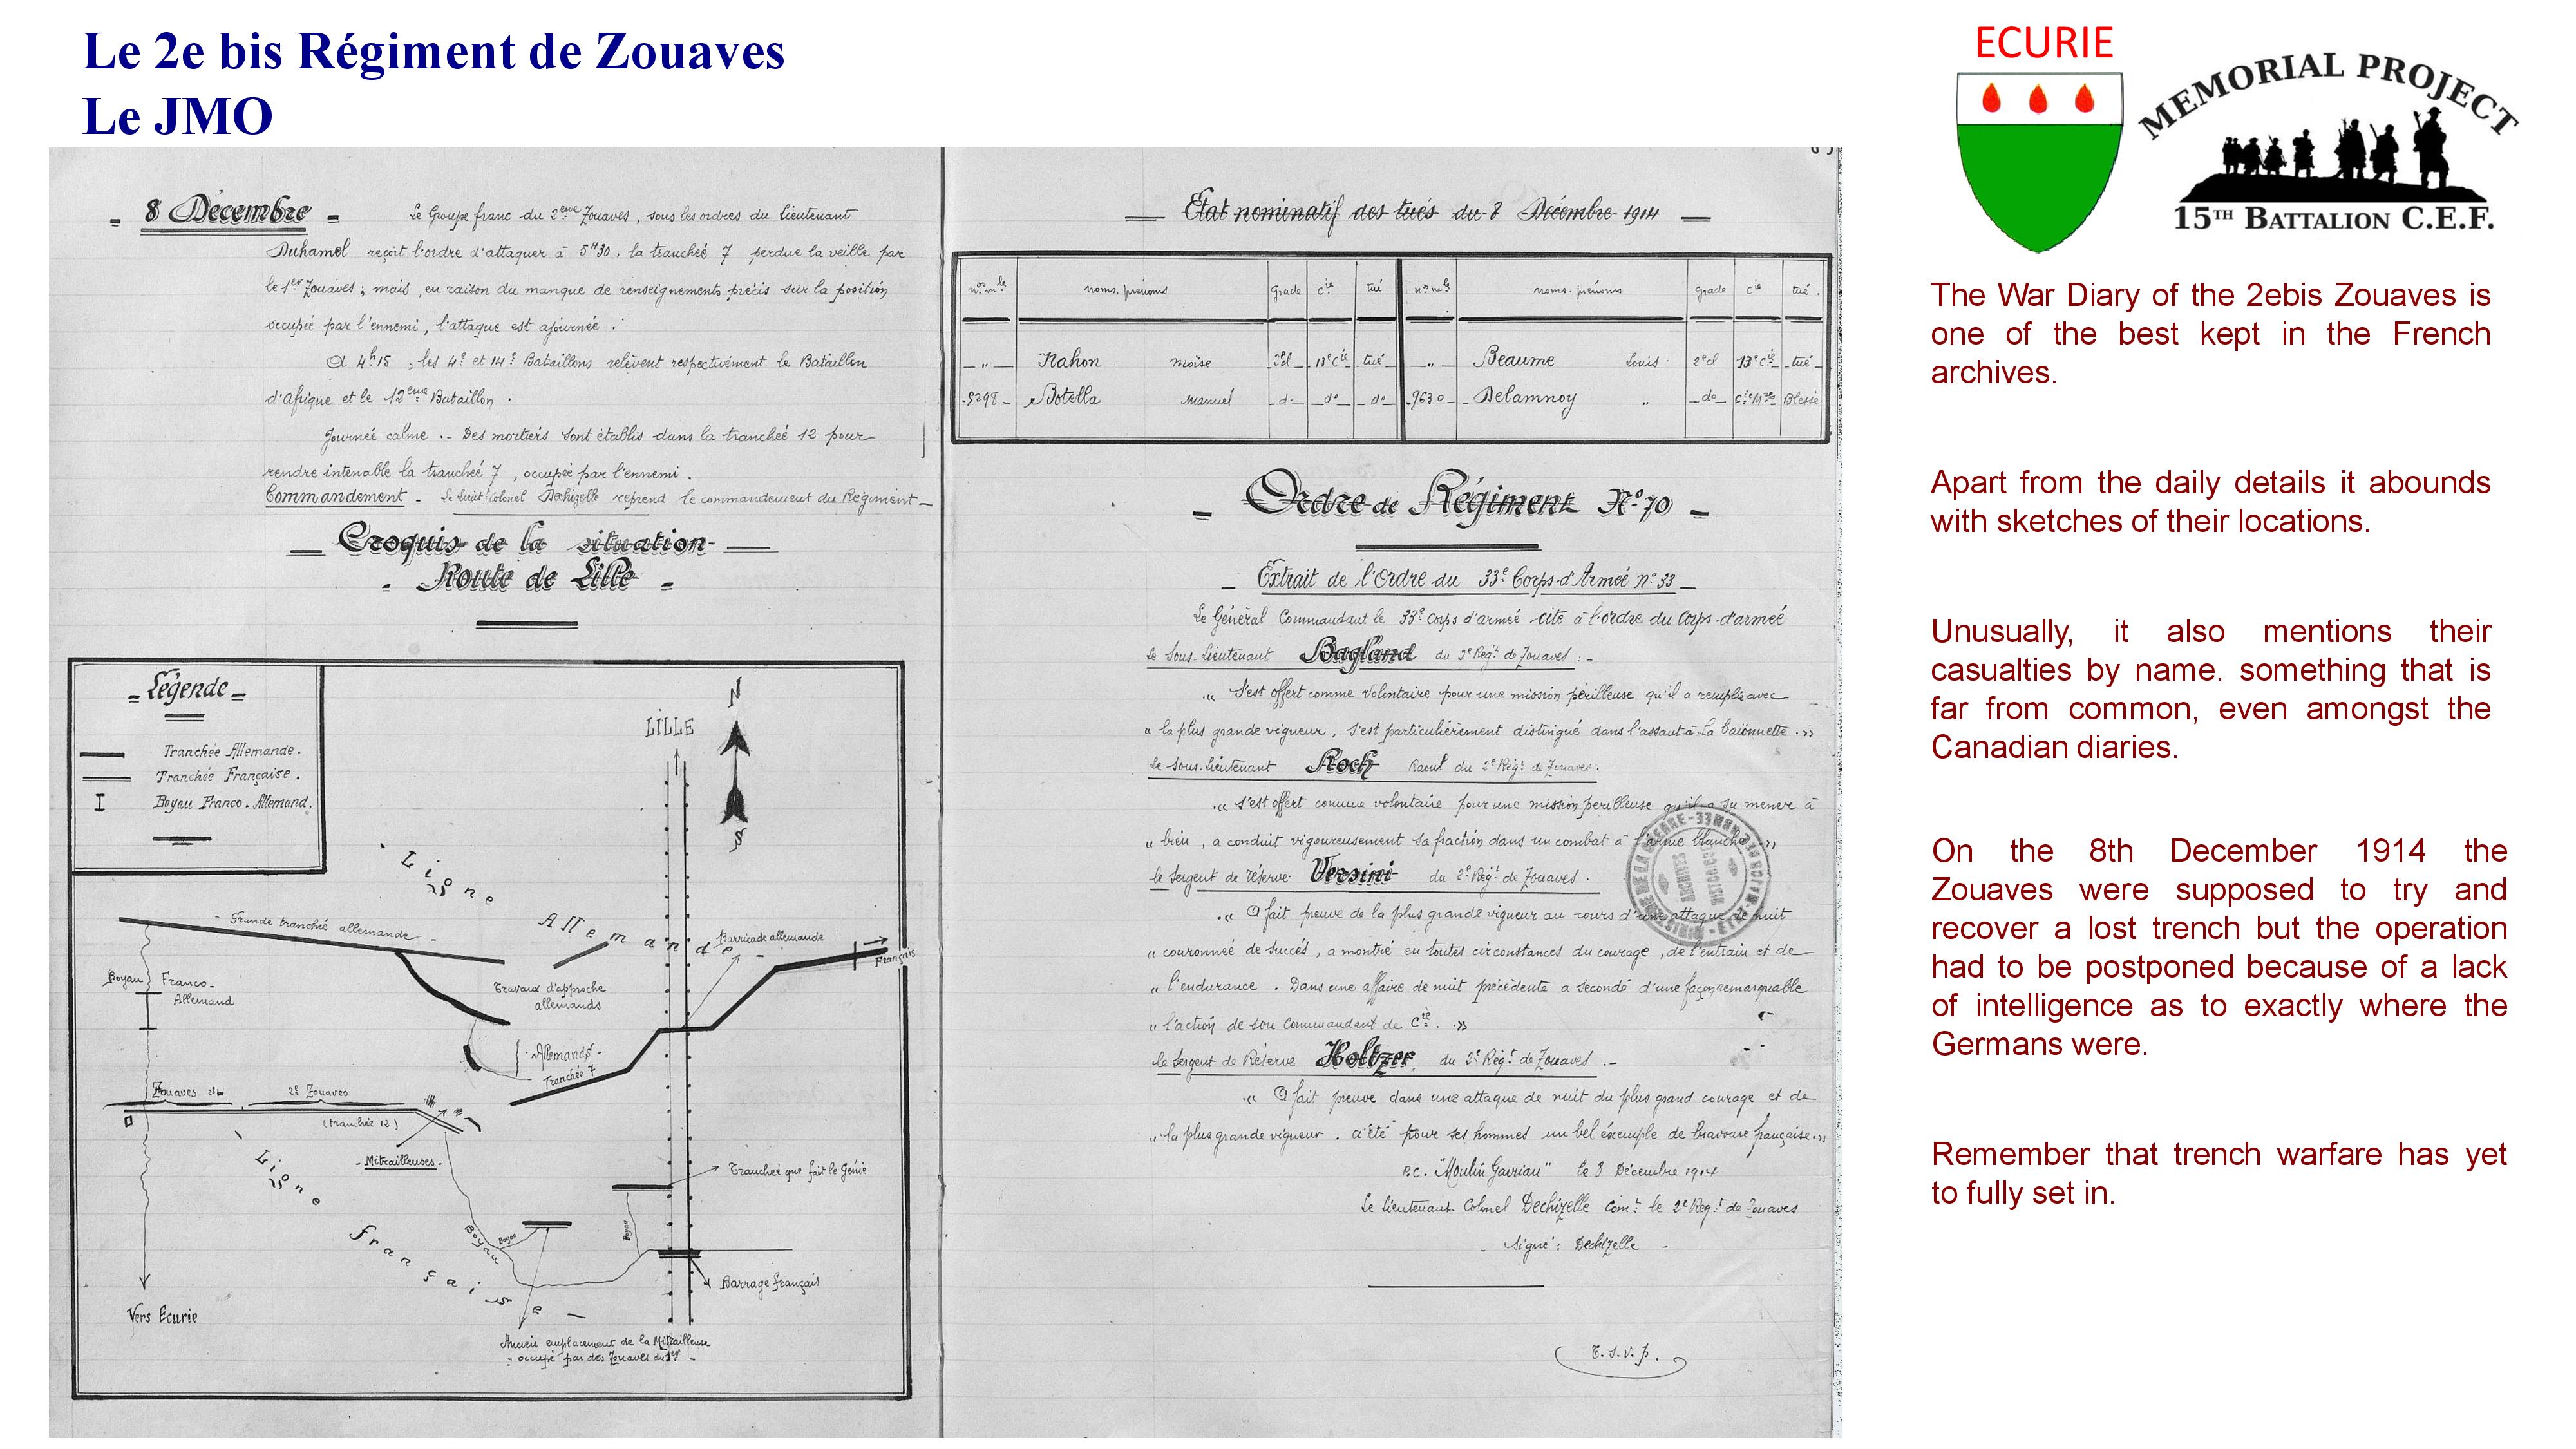 Le 2e bis Régiment de Zouaves
Le JMO
- 8 Décembre -
Le Groupe franc du 2ème Zouaves, sous les ordres du Lieutenant
Duhamel reçoit l'ordre d'attaquer à 5H30, la tranchée 7 perdue la veille par
le 1er Zouaves ; mais, en raison du manque de renseignements précis sur la position
occupée par l'ennemi, l'attaque est ajournée.
A 4h15, les 4e et 14e Bataillons relèvent respectivement le Bataillon
d'Afrique et le 12ème Bataillon.
Journée calme .- Des mortiers sont établis dans la tranchée 12 pour
rendre intenable la tranchée 7, occupée par l'ennemi.
Commandement - Le Lieut. Colonel Dechizelle reprend le commandement du Régiment -
Croquis de la situation
- Route de Lille -
- Légende -
Tranchée Allemande.
Tranchée Française.
Boyau Franco-Allemand.
N
LILLE
S
Ligne Allemande -
- Grande tranchée allemande -
Barricade allemande
Français
Boyau Franco-
Allemand
Travaux d'approche
allemands
Allemands
Tranchée 7
Zouaves
2e Zouaves
(tranchée 12)
- Mitrailleuses -
- Ligne française -
Tranchée que fait le Génie
Boyau
Boyau
Boyau
Barrage français
Vers Ecurie
Ancien emplacement de la Mitrailleuse
- occupé par des Zouaves du 1er -
Etat nominatif des tués du 8 Décembre 1914
noms. prénoms grade Cie tué noms. prénoms grade Cie tué
" Nahon Moïse 2cl 13e Cie tué " Beaume Louis 2e cl 13e Cie tué
5298 Botella Manuel do do do 9630 Delamnoy " do Cie Mses Blessé
- Ordre de Régiment N° 70 -
- Extrait de l'Ordre du 33e Corps d'Armée n° 33 -
Le Général Commandant le 33e Corps d'armée cite à l'ordre du Corps d'armée
Le Sous-Lieutenant Bagland du 2e Régt de Zouaves :-
"S'est offert comme volontaire pour une mission périlleuse qu'il a remplie avec
" la plus grande vigueur, s'est particulièrement distingué dans l'assaut à la baïonnette. "
Le Sous-Lieutenant Roch Raoul du 2e Régt de Zouaves.
" s'est offert comme volontaire pour une mission périlleuse qu'il a su mener à
" bien, a conduit vigoureusement sa fraction dans un combat à l'arme blanche "
le Sergent de réserve Versini du 2e Régt de Zouaves.
" A fait preuve de la plus grande vigueur au cours d'une attaque de nuit
" couronnée de succès, a montré en toutes circonstances du courage, de l'entrain et de
" l'endurance. Dans une affaire de nuit précédente a secondé d'une façon remarquable
" l'action de son Commandant de Cie. "
le Sergent de Réserve Holtzer, du 2e Régt de Zouaves.-
" A fait preuve dans une attaque de nuit du plus grand courage et de
" la plus grande vigueur. a été pour ses hommes un bel exemple de bravoure française. "
P.C. "Moulin Gavriau" le 8 Décembre 1914
Le Lieutenant Colonel Dechizelle Comt le 2e Régt de Zouaves
- Signé : Dechizelle -
T.S.V.P.
ECURIE
MEMORIAL PROJECT
15TH BATTALION C.E.F.
The War Diary of the 2ebis Zouaves is
one of the best kept in the French
archives.
Apart from the daily details it abounds
with sketches of their locations.
Unusually, it also mentions their
casualties by name. something that is
far from common, even amongst the
Canadian diaries.
On the 8th December 1914 the
Zouaves were supposed to try and
recover a lost trench but the operation
had to be postponed because of a lack
of intelligence as to exactly where the
Germans were.
Remember that trench warfare has yet
to fully set in.